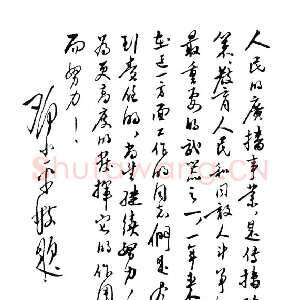 人民的廣播事業，是传播
策、教育人民和同敌人斗争
最重要的武器之一，一年来
在这一方面工作的同志们是尽
到责任的，尚望继续努力，
為更高度的發揮它的作用
而努力！
鄧小平敬題
Shufawang.CN